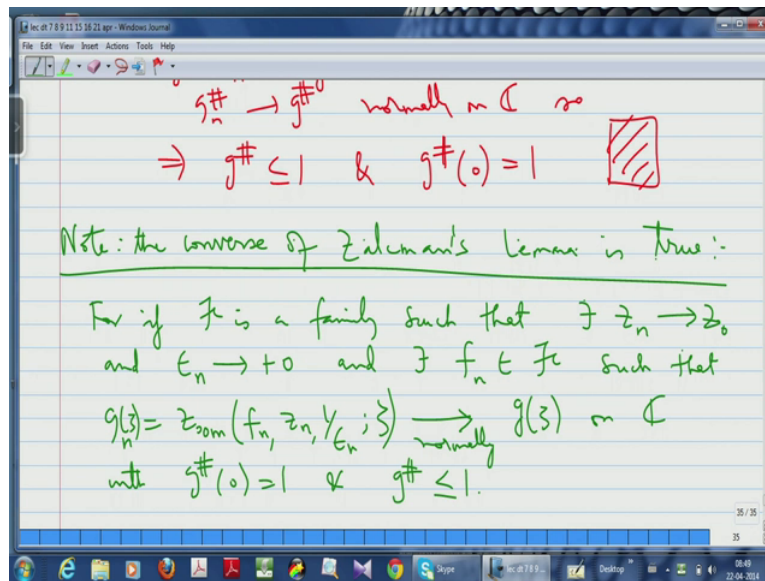 lec dt 7 8 9 11 15 16 21 apr - Windows Journal
File Edit View Insert Actions Tools Help
g_n^# → g^# normally on ℂ so
⇒ g^# ≤ 1 & g^#(0) = 1
Note: the converse of Zalcman's Lemma is true:-
For if ℱ is a family such that ∃ z_n → z_0
and ε_n → +0 and ∃ f_n ∈ ℱ such that
g_n(ζ) = zoom(f_n, z_n, 1/ε_n; ζ) → normally g(ζ) on ℂ
with g^#(0) = 1 & g^# ≤ 1.
35 / 35
35
Skype
lec dt 7 8 9 ...
Desktop
08:49
22-04-2014